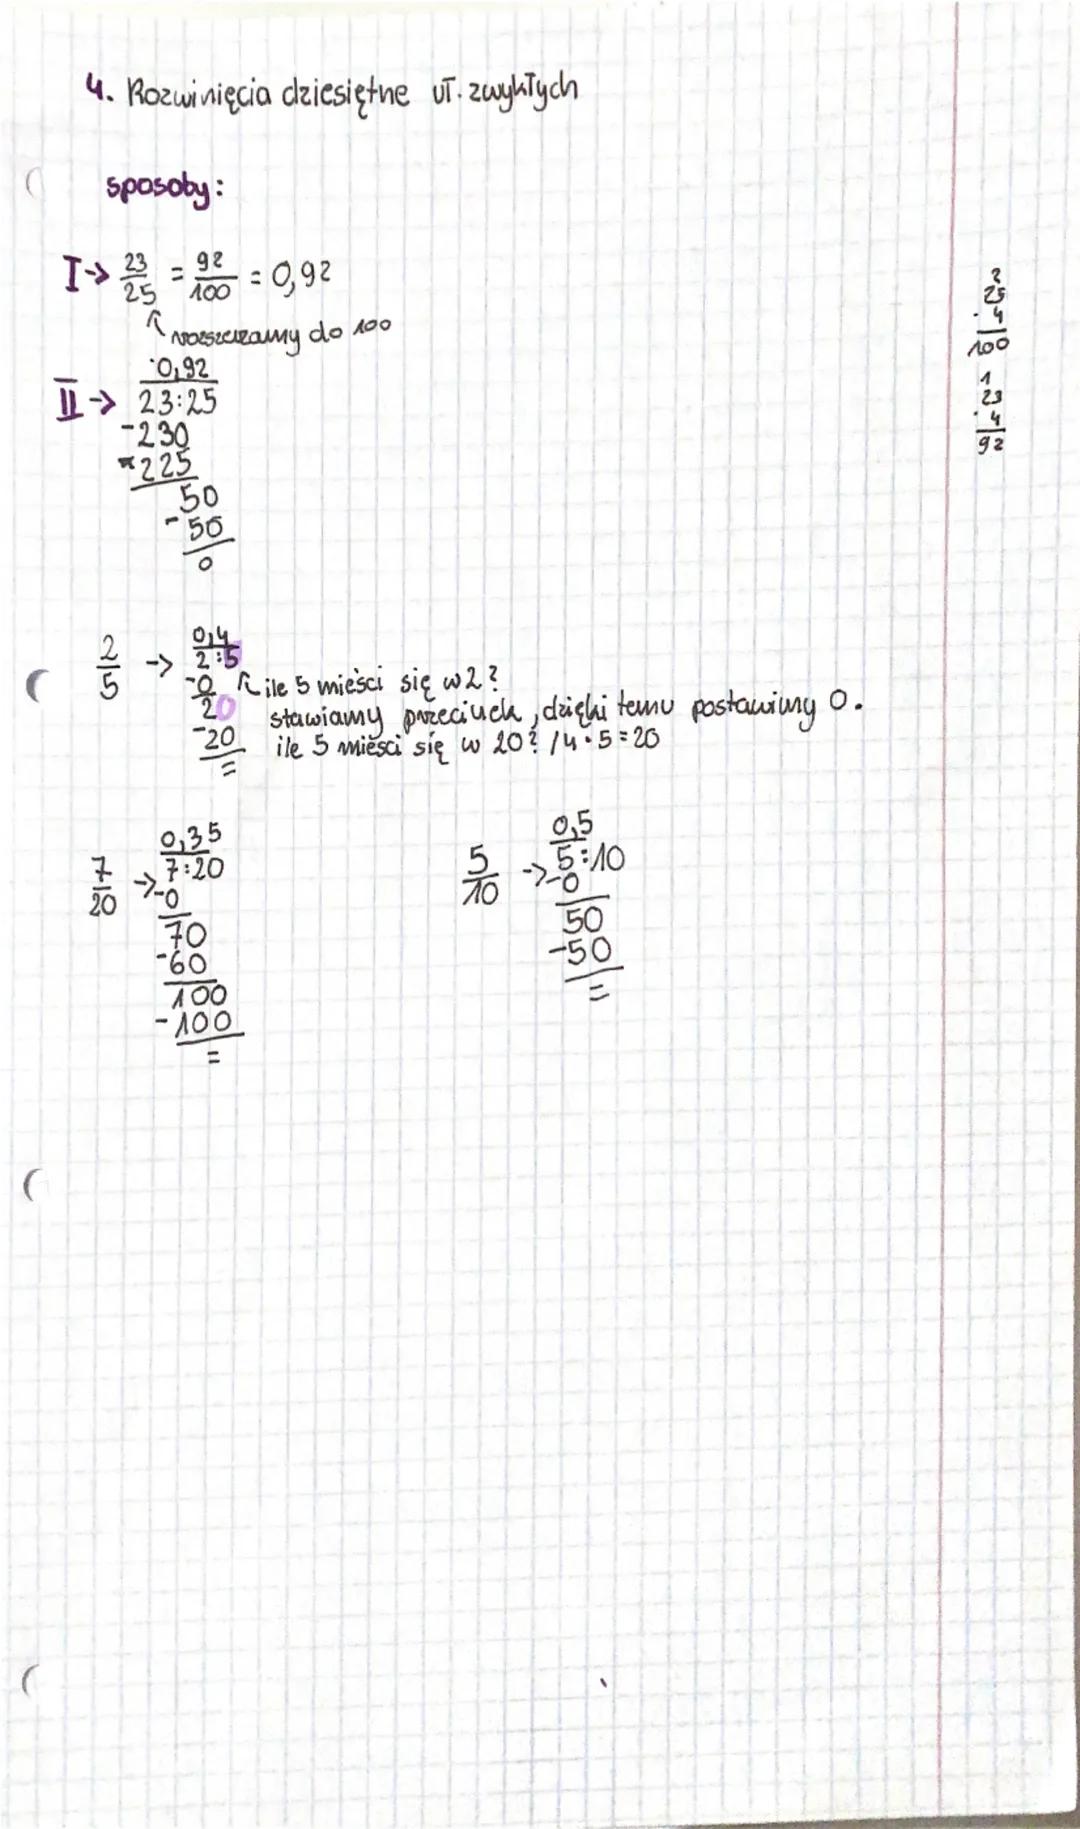 4. Rozwinięcia dziesiętne uł. zwykłych
sposoby:
I → 23/25 = 92/100 = 0,92
↑ rozszerzamy do 100
2
25
· 4
100
1
23
· 4
92
0,92
II → 23:25
-230
-225
50
-50
0
2/5 → 0,4
2:5
-0 ↑ ile 5 mieści się w 2?
20 stawiamy przecinek, dzięki temu postawimy 0.
-20 ile 5 mieści się w 20? / 4·5=20
=
7/20 → 0,35
7:20
-0
70
-60
100
-100
=
5/10 → 0,5
5:10
-0
50
-50
=